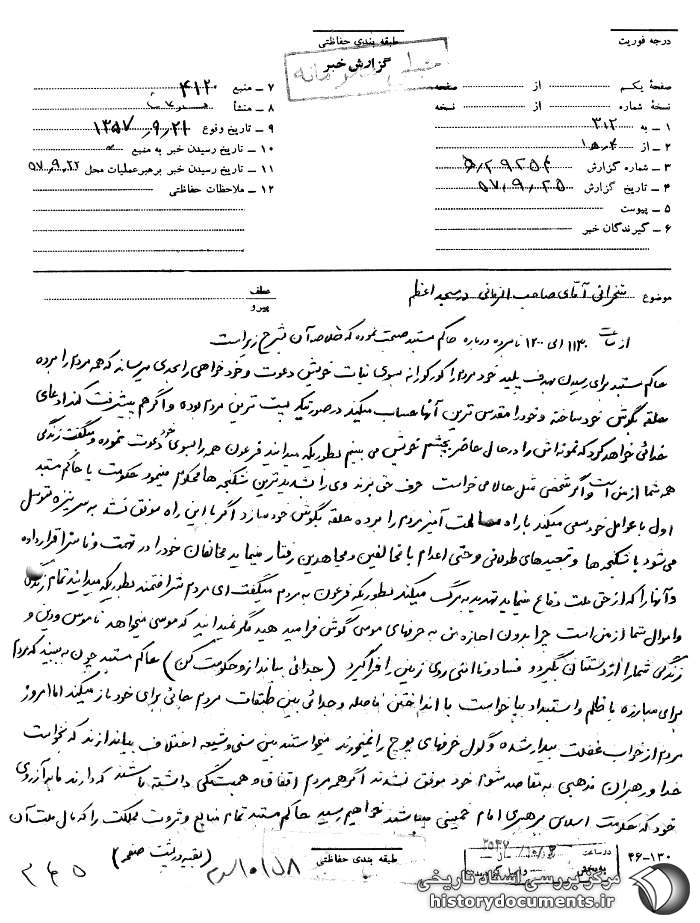 درجه فوریت
طبقه بندی حفاظتی
گزارش خبر
صفحهٔ یکم از صفحه
نسخهٔ شماره از نسخه
۱ - به ۳۱۲
۲ - از ۱۵ه۴
۳ - شماره گزارش ۵/۲۹۲۵۴
۴ - تاریخ گزارش ۵۷/۹/۲۵
۵ - پیوست
۶ - گیرندگان خبر
۷ - منبع ۴۱۲۰
۸ - منشأ
۹ - تاریخ وقوع ۱۳۵۷/۹/۲۱
۱۰ - تاریخ رسیدن خبر به منبع
۱۱ - تاریخ رسیدن خبر برهبر عملیات محل ۵۷/۹/۲۲
۱۲ - ملاحظات حفاظتی
موضوع سخنرانی آقای صاحب الزمانی در مسجد اعظم
عطف
پیرو
از ساعت ۱۱۳۰ الی ۱۲۰۰ نامبرده درباره حاکم مستبد صحبت نموده که خلاصه آن بشرح زیر است
حاکم مستبد برای رسیدن بهدف پلید خود مردم را کورکورانه بسوی نیات خویش دعوت و خودخواهی را بجدی میرساند که همه مردم را برده
حلقه بگوش خود ساخته و خود را مقدس ترین آنها حساب میکند در صورتیکه پست ترین مردم بوده و اگر هم پیشرفت کند ادعای
خدائی خواهد کرد که نمونه اش را در حال حاضر بچشم خویش می بینم بطوریکه میدانید فرعون همه را بسوی خود دعوت نموده و میگفت زندگی
همه شما از من است و اگر شخصی مثل حالا میخواست حرف حق بزند وی را بشدیدترین شکنجه ها محکوم مینمود حکومت یا حاکم مستبد
اول با عوامل خود سعی میکند با راه مسالمت آمیز مردم را برده حلقه بگوش خود سازد اگر با این راه موفق نشد به سرنیزه متوسل
می شود با شکنجه ها و تبعیدهای طولانی و حتی اعدام با مخالفین و مجاهدین رفتار مینماید مخالفان خود را در تهمت و ناسزا قرار داده
و آنها را که از حق ملت دفاع مینماید تهدید به مرگ میکند بطوریکه فرعون به مردم میگفت ای مردم شرافتمند بطوریکه میدانید تمام زندگی
و اموال شما از من است چرا بدون اجازه من به حرفهای موسی گوش فرا میدهید مگر نمیدانید که موسی میخواهد ناموس و دین و
زندگی شما را از دستتان بگیرد و فساد و ناامنی روی زمین را فراگیرد (جدائی بیانداز و حکومت کن) حاکم مستبد چون به بیند که مردم
برای مبارزه با ظلم و استبداد بپا خواست با انداختن فاصله و جدائی بین طبقات مردم جائی برای خود باز میکند اما امروز
مردم از خواب غفلت بیدار شده و گول حرفهای پوچ را نمیخورند میخواستند بین سنی و شیعه اختلاف بیاندازند که بخواست
خدا و رهبران مذهبی به مقاصد شوم خود موفق نشدند اگر همه مردم اتفاق و همبستگی داشته باشند که دارند ما به آرزوی
خود که حکومت اسلامی به رهبری امام خمینی میباشد خواهیم رسید حاکم مستبد تمام منابع و ثروت مملکت را که مال ملت آن
(بقیه در پشت صفحه)
طبقه بندی حفاظتی
۴۶-۱۳۰
مرکز بررسی اسناد تاریخی
historydocuments.ir